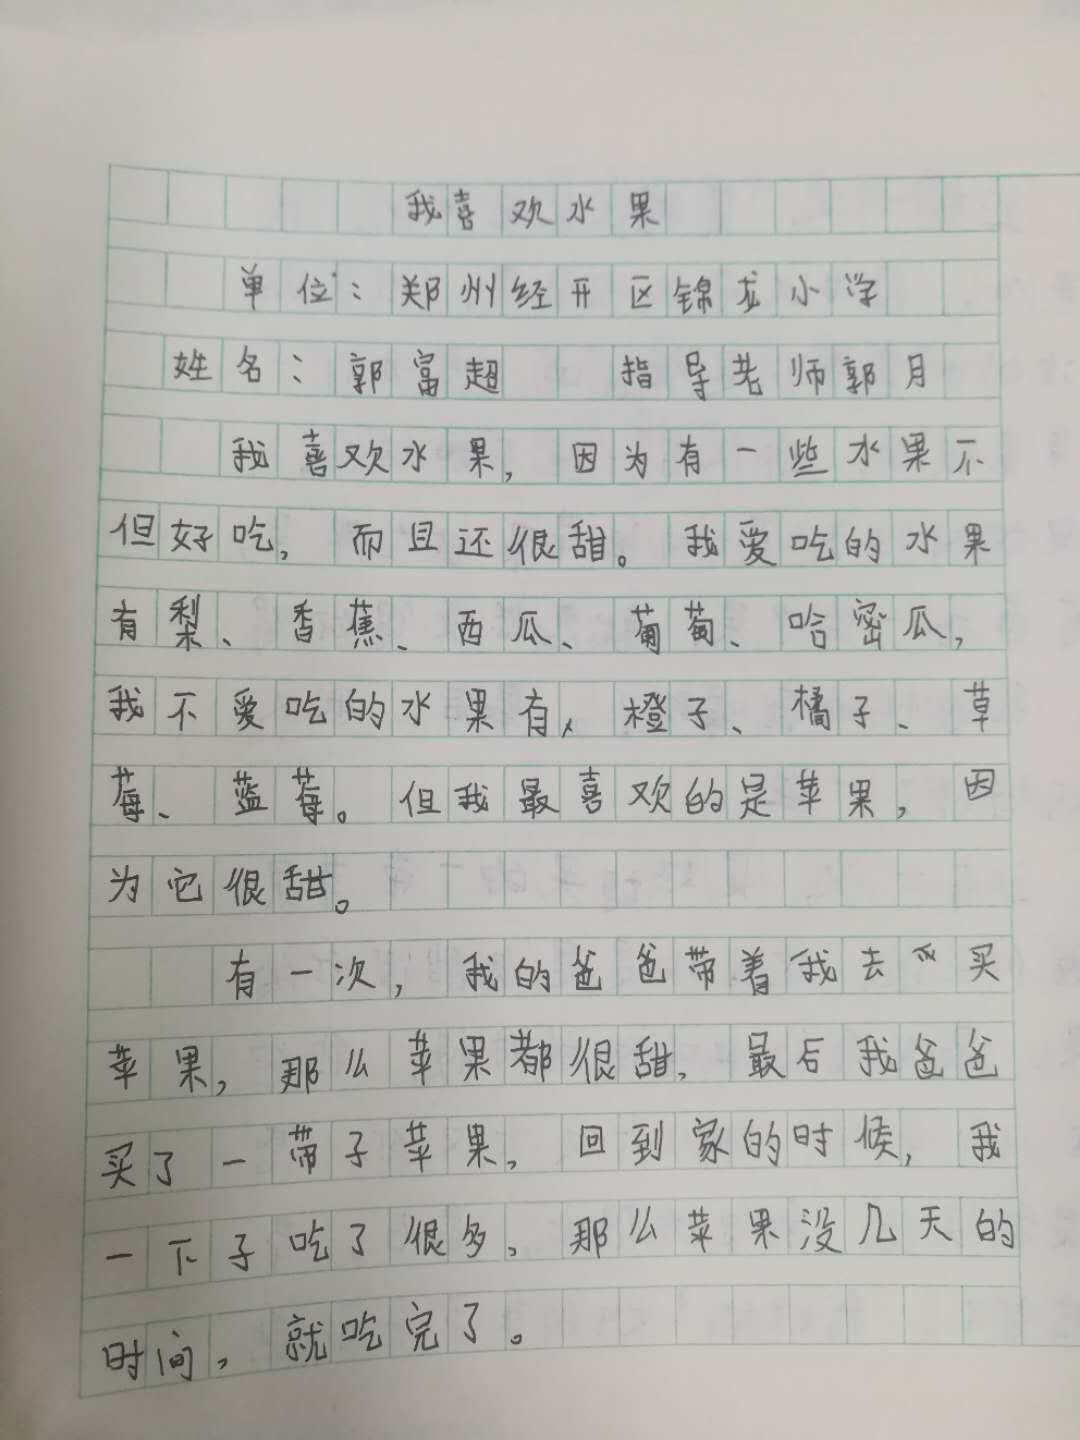 我喜欢水果
单位：郑州经开区锦龙小学
姓名：郭富超 指导老师郭月
我喜欢水果，因为有一些水果不
但好吃，而且还很甜。我爱吃的水果
有梨、香蕉、西瓜、葡萄、哈密瓜，
我不爱吃的水果有，橙子、橘子、草
莓、蓝莓。但我最喜欢的是苹果，因
为它很甜。
有一次，我的爸爸带着我去买
苹果，那么苹果都很甜，最后我爸爸
买了一带子苹果，回到家的时候，我
一下子吃了很多，那么苹果没几天的
时间，就吃完了。